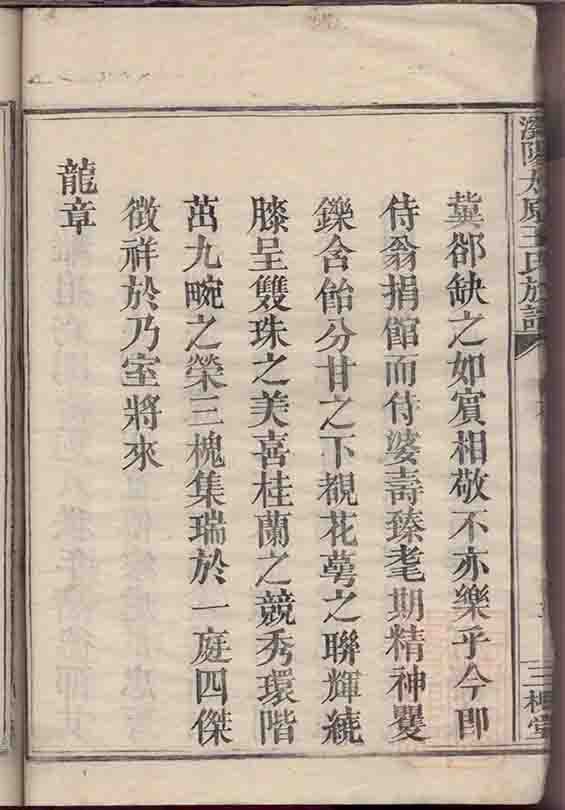 瀏陽太原王氏族譜
三槐堂
冀郤缺之如賓相敬不亦樂乎今即
侍翁捐館而侍婆壽臻耄期精神矍
鑠含飴分甘之下覩花萼之聯輝繞
膝呈雙珠之美喜桂蘭之競秀環階
茁九畹之榮三槐集瑞於一庭四傑
徵祥於乃室將來
龍章